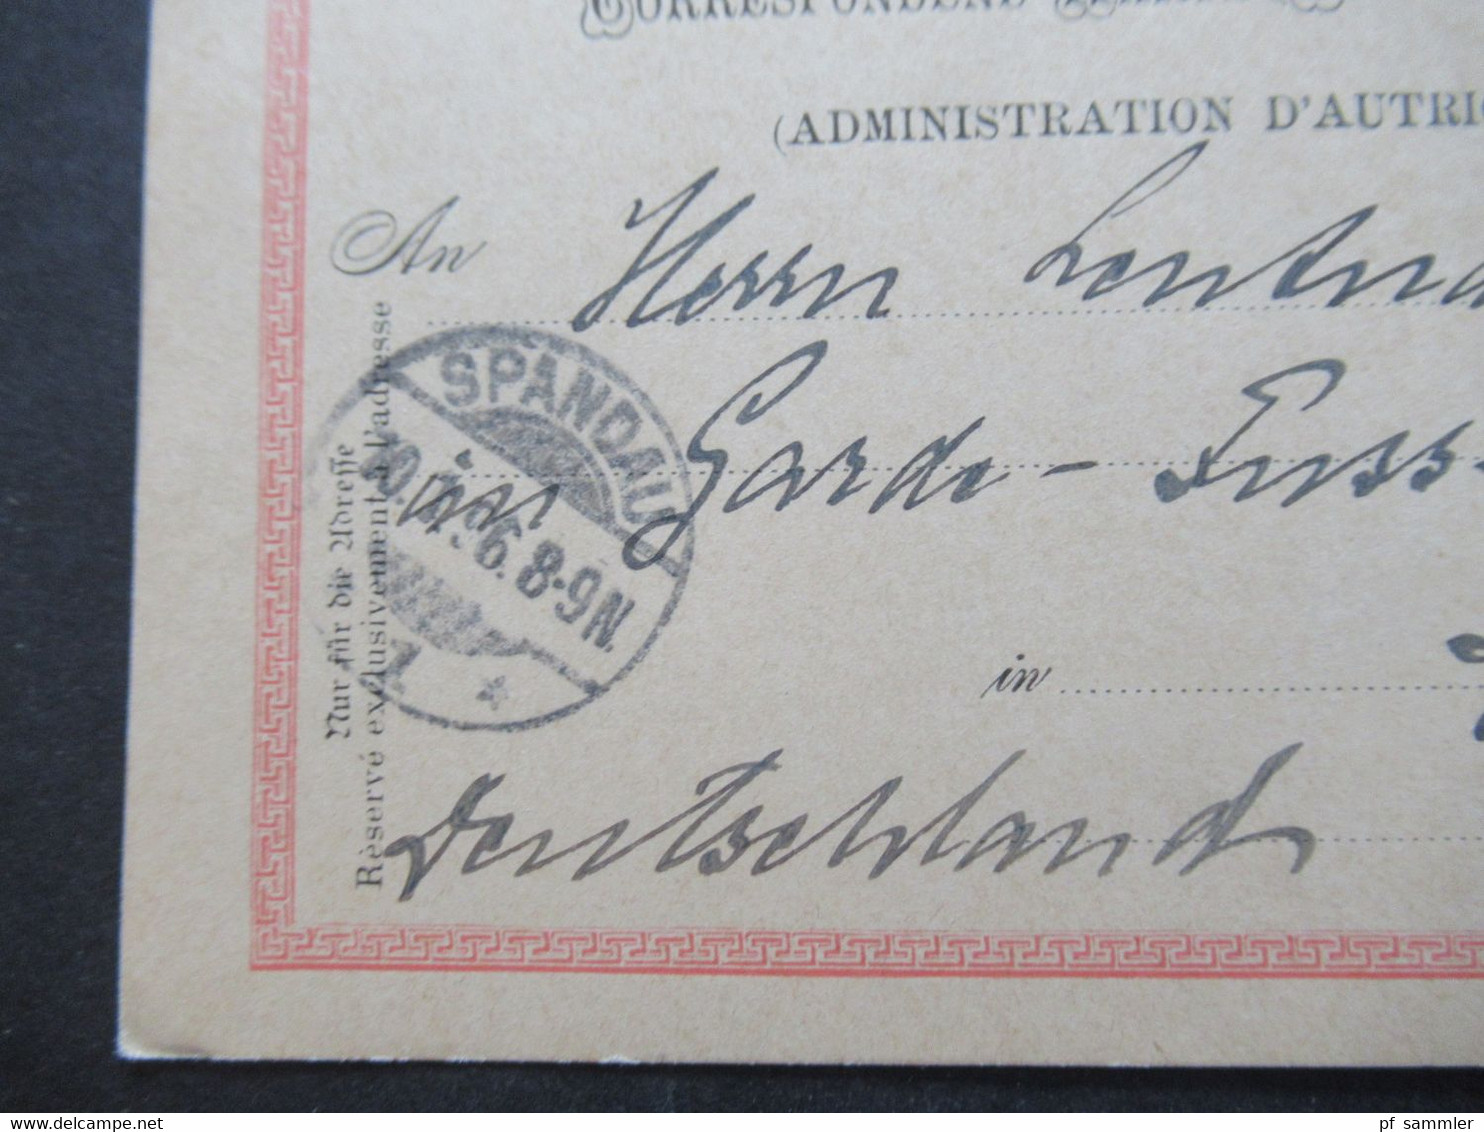 CORRESPONDENZ-KARTE
(ADMINISTRATION D'AUTRI
An Herrn Leutna
im Garde-Fuss-
in
Deutschland
Nur für die Adresse
Réservé exclusivement à l'adresse
SPANDAU
96. 8-9N.
1
*
pf sammler